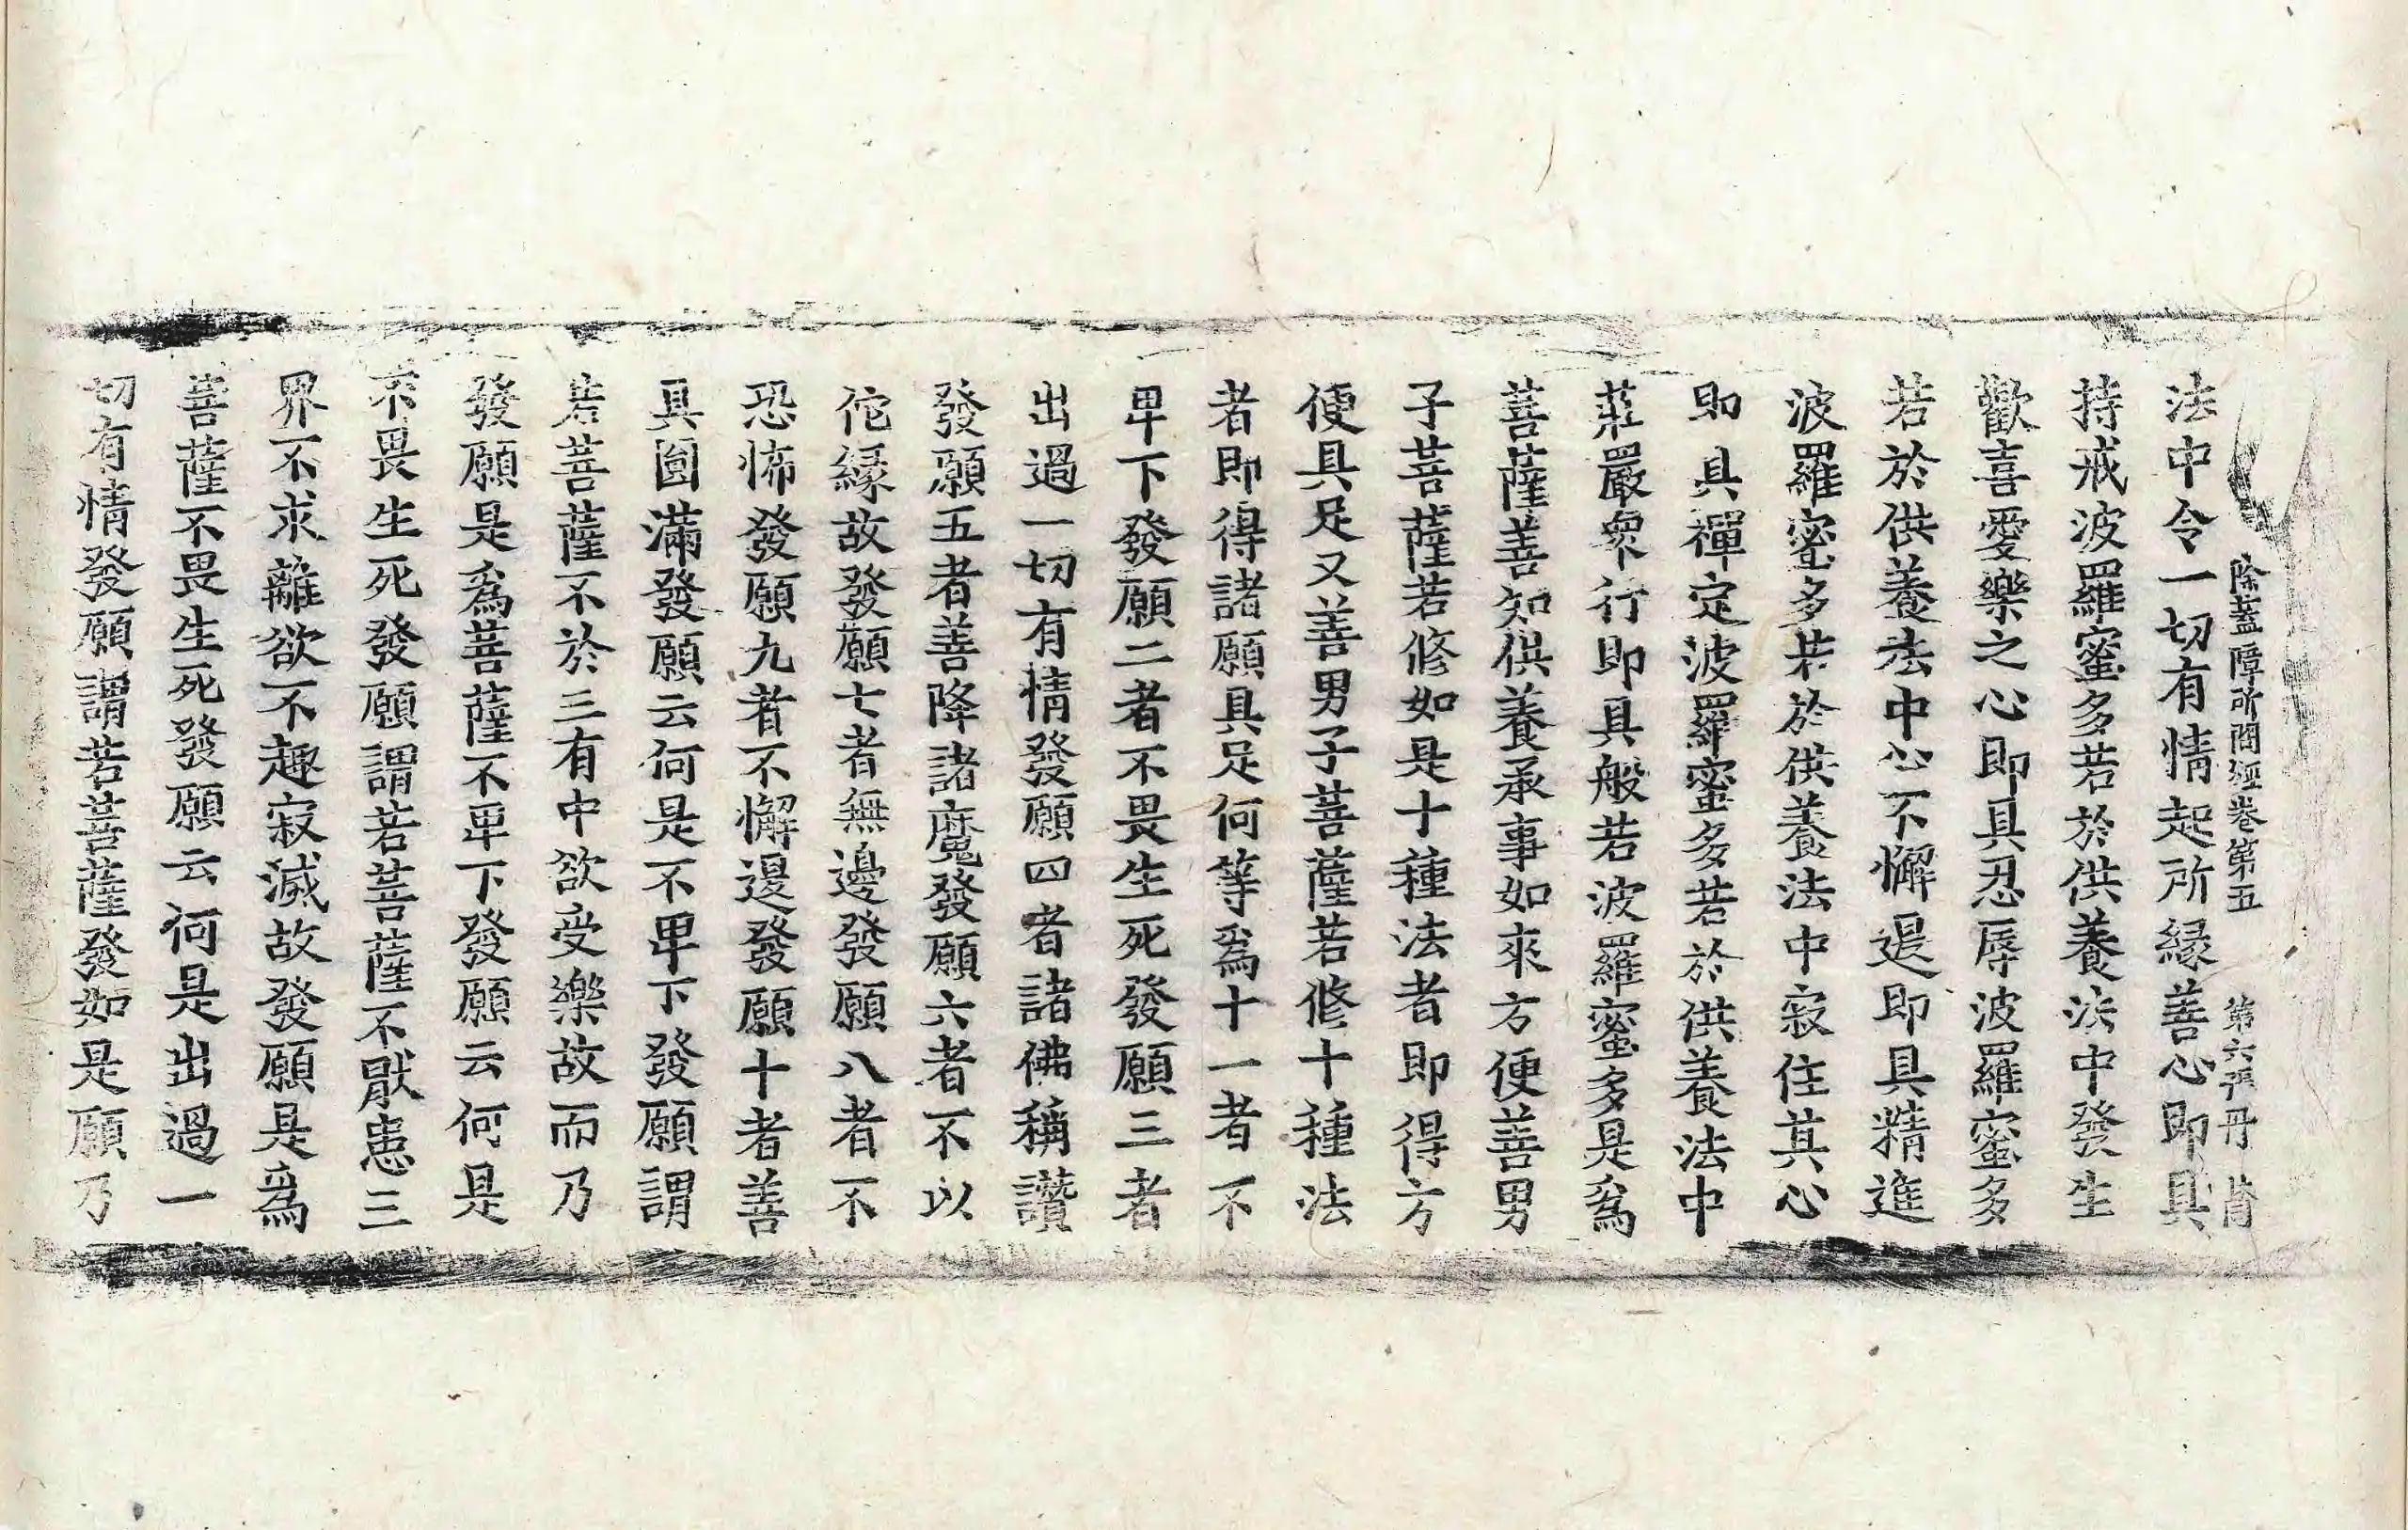 除蓋障所問經卷第五 第六張 丹 背
法中令一切有情起所緣善心即具
持戒波羅蜜多若於供養法中發生
歡喜愛樂之心即具忍辱波羅蜜多
若於供養法中心不懈退即具精進
波羅蜜多若於供養法中寂住其心
即具禪定波羅蜜多若於供養法中
莊嚴衆行即具般若波羅蜜多是爲
菩薩善知供養承事如來方便善男
子菩薩若修如是十種法者即得方
便具足又善男子菩薩若修十種法
者即得諸願具足何等爲十一者不
卑下發願二者不畏生死發願三者
出過一切有情發願四者諸佛稱讚
發願五者善降諸魔發願六者不以
佗緣故發願七者無邊發願八者不
恐怖發願九者不懈退發願十者善
具圓滿發願云何是不卑下發願謂
若菩薩不於三有中欲受樂故而乃
發願是爲菩薩不卑下發願云何是
不畏生死發願謂若菩薩不猒患三
界不求離欲不趣寂滅故發願是爲
菩薩不畏生死發願云何是出過一
切有情發願謂若菩薩發如是願乃